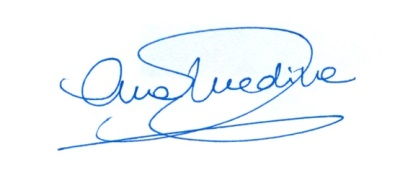 Ana Medina